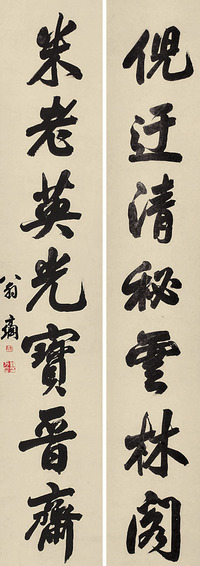 倪迂清秘雲林閣
米老英光寶晉齋